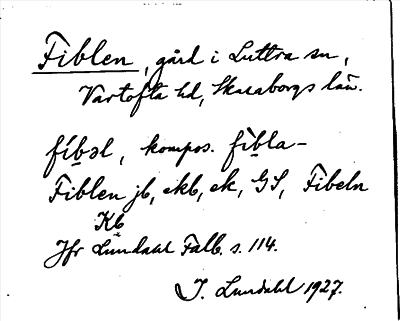 Fiblen, gård i Luttra sn,
Vartofta hd, Skaraborgs län.
fíbəl, kompos. fìbla-
Fiblen jb, ekb, ek, GS, Fibeln
Kb
Jfr Lundahl Falb. s. 114.
I. Lundahl 1927.